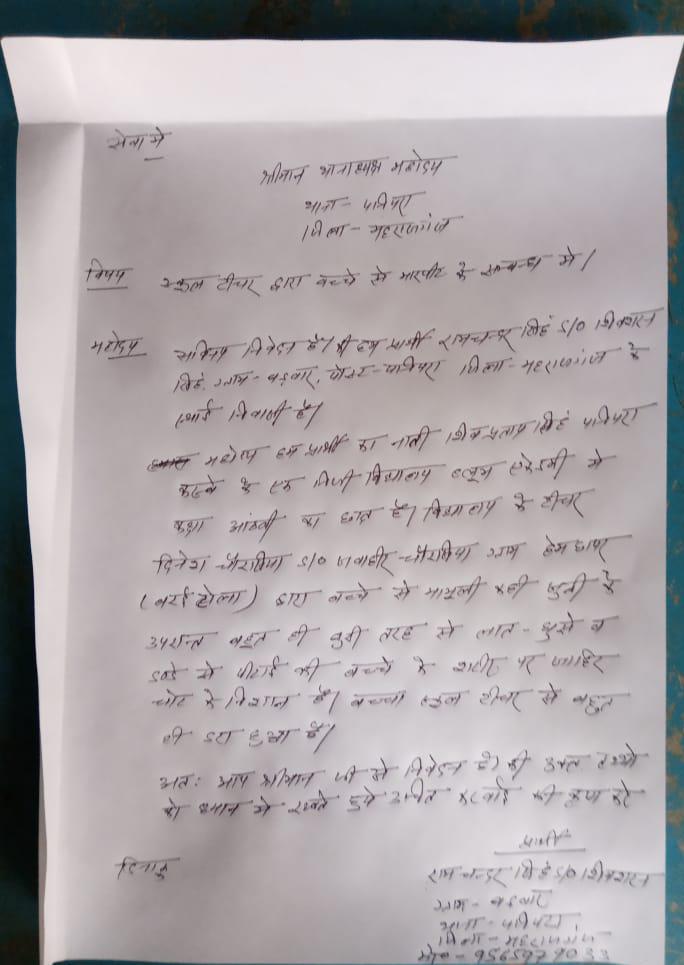 सेवा मे
श्रीमान थानाध्यक्ष महोदय
थाना- पनियरा
जिला- महराजगंज
विषय स्कुल टीचर द्वारा बच्चे से मारपीट के सम्बन्ध मे।
महोदय सविनय निवेदन है। की हम प्रार्थी रामचन्दर सिंह S/O शिवशरन
सिंह, ग्राम- बडवार, पोस्ट- पनियरा जिला- महराजगंज के
स्थाई निवासी है।
महोदय हम प्रार्थी का नाती शिवप्रताप सिंह पनियरा
कस्बे के एक निजी विद्यालय ब्लूम एकेडमी मे
कक्षा आंठवी का छात्र है। विद्यालय के टीचर
दिनेश चौरसिया S/O जवाहीर चौरसिया ग्राम
(बरई टोला) द्वारा बच्चे से मामूली कही सुनी के
उपरान्त बहुत ही बुरी तरह से लात- घुसे व
डन्डे से पीटाई की बच्चे के शरीर पर जाहिर
चोट के निशान है। बच्चा स्कूल टीचर से बहुत
ही डरा हुआ है।
अतः आप श्रीमान जी से निवेदन है। की उक्त तथ्यो
को ध्यान मे रखते हुये उचित करवाई की कृपा करे
प्रार्थी
दिनांक
रामचन्दर सिंह S/O शिवशरन
ग्राम- बडवार
थाना- पनियरा
जिला- महराजगंज
मो०- 9565979033